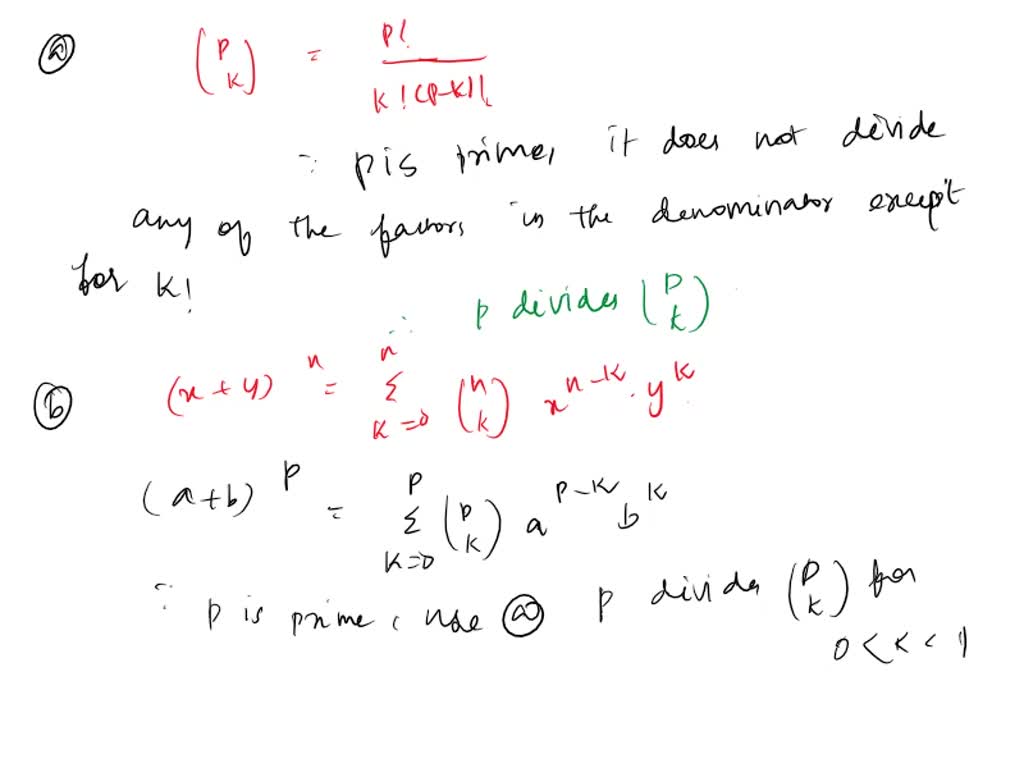 ⓐ (p k) = p! / k!(p-k)!
∵ p is prime, it does not divide
any of the factors in the denominator except
for k!
∴ p divides (p k)
ⓑ (x + y)^n = n Σ k=0 (n k) x^n-k · y^k
(a+b)^p = p Σ k=0 (p k) a^p-k b^k
∵ p is prime, use ⓐ p divides (p k) for
0 < k < 1